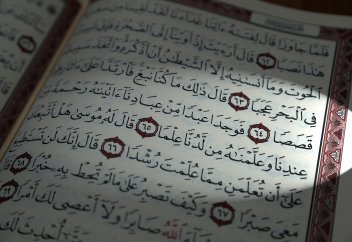 فَلَمَّا جَاوَزَا قَالَ لِفَتَىٰهُ ءَاتِنَا غَدَآءَنَا لَقَدْ
هَٰذَا نَصَبًا ٦٢ قَالَ أَرَءَيْتَ إِذْ أَوَيْنَآ إِلَى ٱلصَّخْرَةِ
ٱلْحُوتَ وَمَآ أَنسَىٰنِيهُ إِلَّا ٱلشَّيْطَٰنُ أَنْ أَذْكُرَهُۥ وَٱتَّخَذَ
فِى ٱلْبَحْرِ عَجَبًا ٦٣ قَالَ ذَٰلِكَ مَا كُنَّا نَبْغِ فَٱرْتَدَّا عَلَىٰٓ
قَصَصًا ٦٤ فَوَجَدَا عَبْدًا مِّنْ عِبَادِنَآ ءَاتَيْنَٰهُ رَحْمَةً
عِندِنَا وَعَلَّمْنَٰهُ مِن لَّدُنَّا عِلْمًا ٦٥ قَالَ لَهُۥ مُوسَىٰ هَلْ أَتَّبِعُكَ
عَلَىٰٓ أَن تُعَلِّمَنِ مِمَّا عُلِّمْتَ رُشْدًا ٦٦ قَالَ إِنَّكَ لَن تَسْتَطِيعَ
مَعِىَ صَبْرًا ٦٧ وَكَيْفَ تَصْبِرُ عَلَىٰ مَا لَمْ تُحِطْ بِهِۦ خُبْرًا ٦٨
ٱللَّهُ صَابِرًا وَلَآ أَعْصِى لَكَ أَمْرًا ٦٩
أُحْدِثَ لَكَ